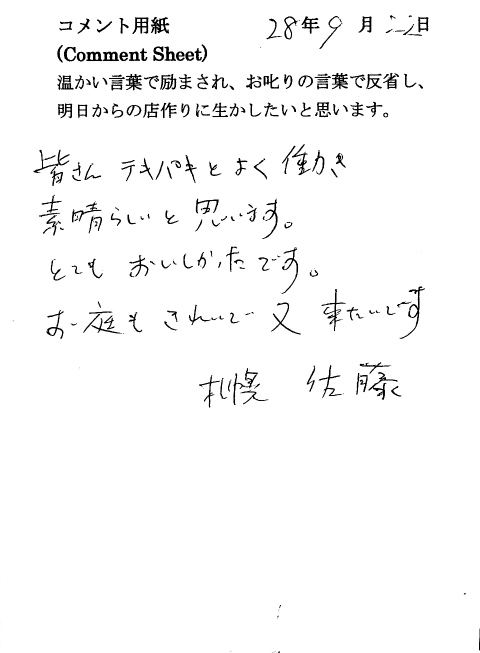 コメント用紙 28年9月 日
(Comment Sheet)
温かい言葉で励まされ、お叱りの言葉で反省し、
明日からの店作りに生かしたいと思います。
皆さん テキパキとよく働き
素晴らしいと思います。
とても おいしかったです。
お庭も きれいで 又 来たいです
札幌 佐藤